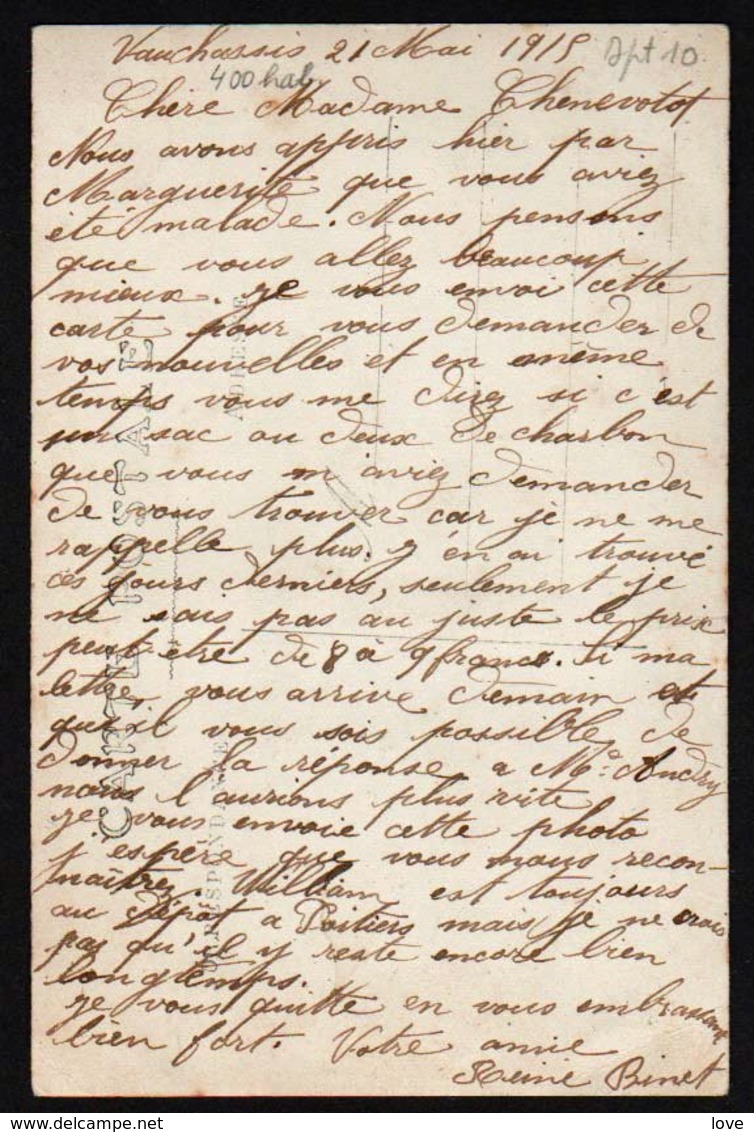 Vauchassis 21 Mai 1915
Dpt 10
400 hab
Chère Madame Chenevotot
Nous avons appris hier par
Marguerite que vous aviez
été malade. Nous pensons
que vous allez beaucoup
mieux. Je vous envoi cette
carte pour vous demander de
vos nouvelles et en même
temps vous me direz si c'est
un sac ou deux de charbon
que vous m'aviez demander
de vous trouver car je ne me
rappelle plus. J'en ai trouvé
ces jours derniers, seulement je
ne sais pas au juste le prix
peut-être de 8 à 9 francs. Si ma
lettre, vous arrive demain et
qu'il vous sois possible de
donner la réponse a Me Audry
nous l'aurions plus vite
Je vous envoie cette photo
j'espère que vous nous recon-
naitrez. William est toujours
au Dépot a Poitiers mais je ne crois
pas qu'il y reste encore bien
longtemps.
Je vous quitte en vous embrassant
bien fort. Votre amie
Reine Binet
CARTE POSTALE
CORRESPONDANCE
ADRESSE
love love